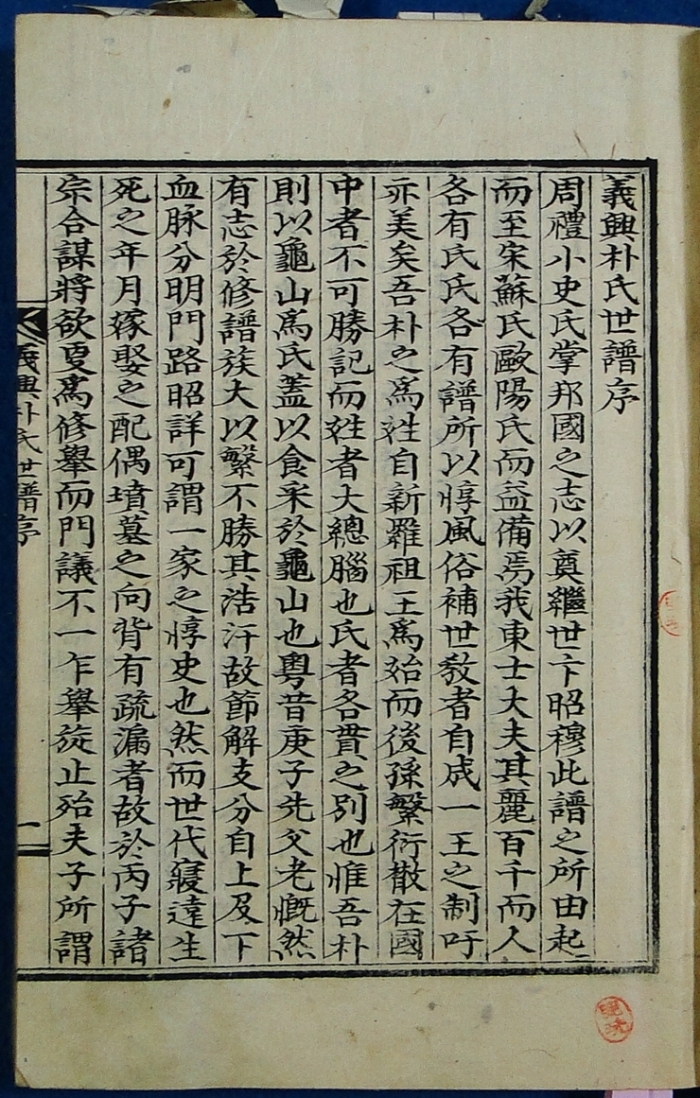 義興朴氏世譜序
周禮小史氏掌邦國之志以奠繼世卞昭穆此譜之所由起
而至宋蘇氏歐陽氏而益備焉我東士大夫其麗百千而人
各有氏氏各有譜所以惇風俗補世敎者自成一王之制吁
亦美矣吾朴之爲姓自新羅祖王爲始而後孫繁衍散在國
中者不可勝記而姓者大總腦也氏者各貫之別也惟吾朴
則以龜山爲氏蓋以食采於龜山也粤昔庚子先父老慨然
有志於修譜族大以繁不勝其浩汗故節解支分自上及下
血脉分明門路昭詳可謂一家之惇史也然而世代寢遠生
死之年月嫁娶之配偶墳墓之向背有疏漏者故於丙子諸
宗合謀將欲更爲修擧而門議不一乍擧旋止殆夫子所謂
義興朴氏世譜序
二